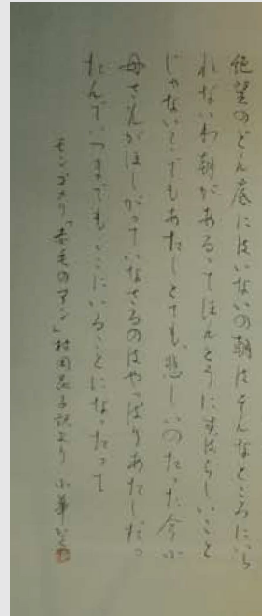 絶望のどん底にはいないの朝はそんなところにいら
れないわ朝があるってほんとうにすばらしいこと
じゃないでもあたしとても悲しいのたった今小
母さんがほしがっていなさるのはやっぱりあたしだっ
たんでいつまでもここにいることになったって
モンゴメリ「赤毛のアン」村岡花子訳より 小華